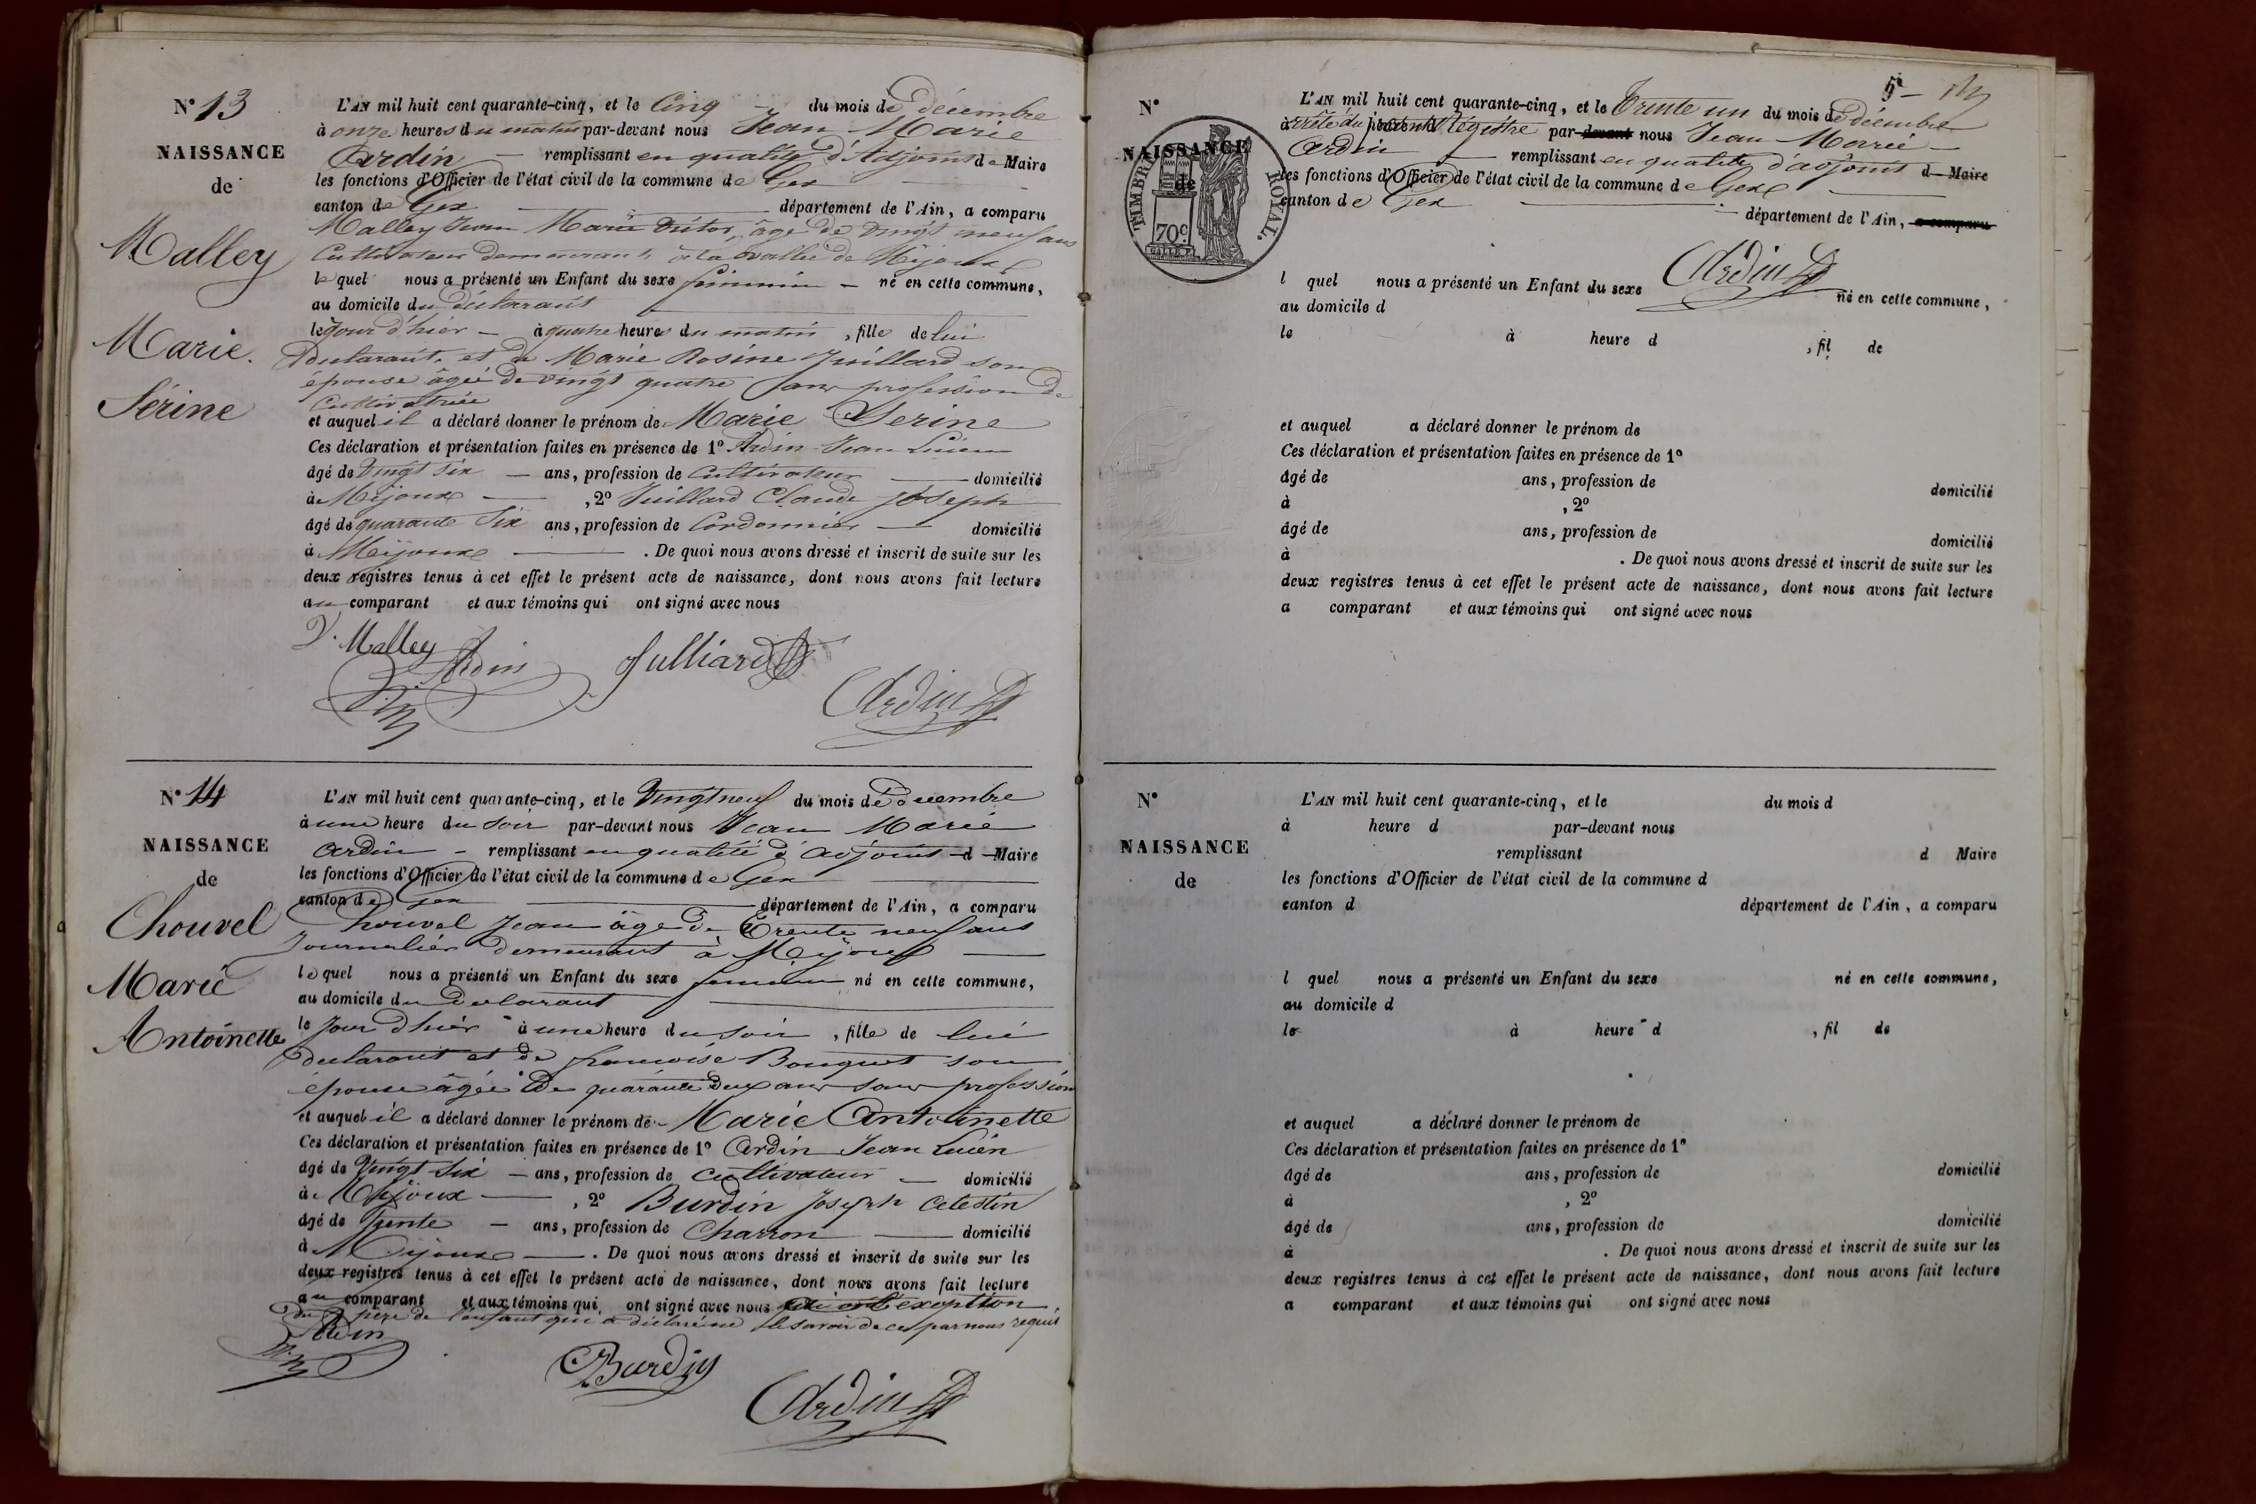 N° 13
NAISSANCE
de
Malley
Marie
Sérine
L'AN mil huit cent quarante-cinq, et le Cinq du mois de décembre
à onze heures du matin par-devant nous Jean Marie
Ardin remplissant en qualité d'Adjoint de Maire
les fonctions d'Officier de l'état civil de la commune de Gex
canton de Gex département de l'Ain, a comparu
Malley Jean Marie Victor, âgé de vingt neuf ans
Cultivateur demeurant à la vallée de Mijoux
lequel nous a présenté un Enfant du sexe féminin né en cette commune,
au domicile du déclarant
le jour d'hier à quatre heures du matin, fille de lui
déclarant, et de Marie Rosine Juillard son
épouse âgée de vingt quatre ans profession de
Cultivatrice
et auquel il a déclaré donner le prénom de Marie Serine
Ces déclaration et présentation faites en présence de 1° Ardin Jean Lucien
âgé de vingt six ans, profession de Cultivateur domicilié
à Mijoux, 2° Juillard Claude Joseph
âgé de quarante six ans, profession de Cordonnier domicilié
à Mijoux. De quoi nous avons dressé et inscrit de suite sur les
deux registres tenus à cet effet le présent acte de naissance, dont nous avons fait lecture
au comparant et aux témoins qui ont signé avec nous
V. Malley
Ardin
Julliard
Ardin
N° 14
NAISSANCE
de
Chouvel
Marie
Antoinette
L'AN mil huit cent quarante-cinq, et le Vingt neuf du mois de décembre
à une heure du soir par-devant nous Jean Marie
Ardin remplissant en qualité d'adjoint d Maire
les fonctions d'Officier de l'état civil de la commune de Gex
canton de Gex département de l'Ain, a comparu
Chouvel Jean âgé de Trente neuf ans
Journalier demeurant à Mijoux
lequel nous a présenté un Enfant du sexe féminin né en cette commune,
au domicile du declarant
le jour d'hier à une heure du soir, fille de lui
declarant et de françoise Bouquet son
épouse âgée de quarante deux ans sans profession
et auquel il a déclaré donner le prénom de Marie Antoinette
Ces déclaration et présentation faites en présence de 1° Ardin Jean Lucien
âgé de Vingt Six ans, profession de cultivateur domicilié
à Mijoux, 2° Burdin Joseph Celestin
âgé de Trente ans, profession de Charron domicilié
à Mijoux. De quoi nous avons dressé et inscrit de suite sur les
deux registres tenus à cet effet le présent acte de naissance, dont nous avons fait lecture
au comparant et aux témoins qui ont signé avec nous exception
du père de l'enfant qui a déclaré ne le savoir de ce par nous requis
Ardin
Burdin
Ardin
5
N°
NAISSANCE
de
TIMBRE ROYAL.
70c
L'AN mil huit cent quarante-cinq, et le Trente un du mois de décembre
arrêté du présent Régistre par devant nous Jean Marie
Ardin remplissant en qualité d'adjoint d Maire
les fonctions d'Officier de l'état civil de la commune de Gex
canton de Gex
département de l'Ain, a comparu
Ardin
l quel nous a présenté un Enfant du sexe né en cette commune,
au domicile d
le à heure d , fil de
et auquel a déclaré donner le prénom de
Ces déclaration et présentation faites en présence de 1°
âgé de ans, profession de domicilié
à , 2°
âgé de ans, profession de domicilié
à . De quoi nous avons dressé et inscrit de suite sur les
deux registres tenus à cet effet le présent acte de naissance, dont nous avons fait lecture
a comparant et aux témoins qui ont signé avec nous
N°
NAISSANCE
de
L'AN mil huit cent quarante-cinq, et le du mois d
à heure d par-devant nous
remplissant d Maire
les fonctions d'Officier de l'état civil de la commune d
canton d département de l'Ain, a comparu
l quel nous a présenté un Enfant du sexe né en cette commune,
au domicile d
le à heure d , fil de
et auquel a déclaré donner le prénom de
Ces déclaration et présentation faites en présence de 1°
âgé de ans, profession de domicilié
à , 2°
âgé de ans, profession de domicilié
à . De quoi nous avons dressé et inscrit de suite sur les
deux registres tenus à cet effet le présent acte de naissance, dont nous avons fait lecture
a comparant et aux témoins qui ont signé avec nous